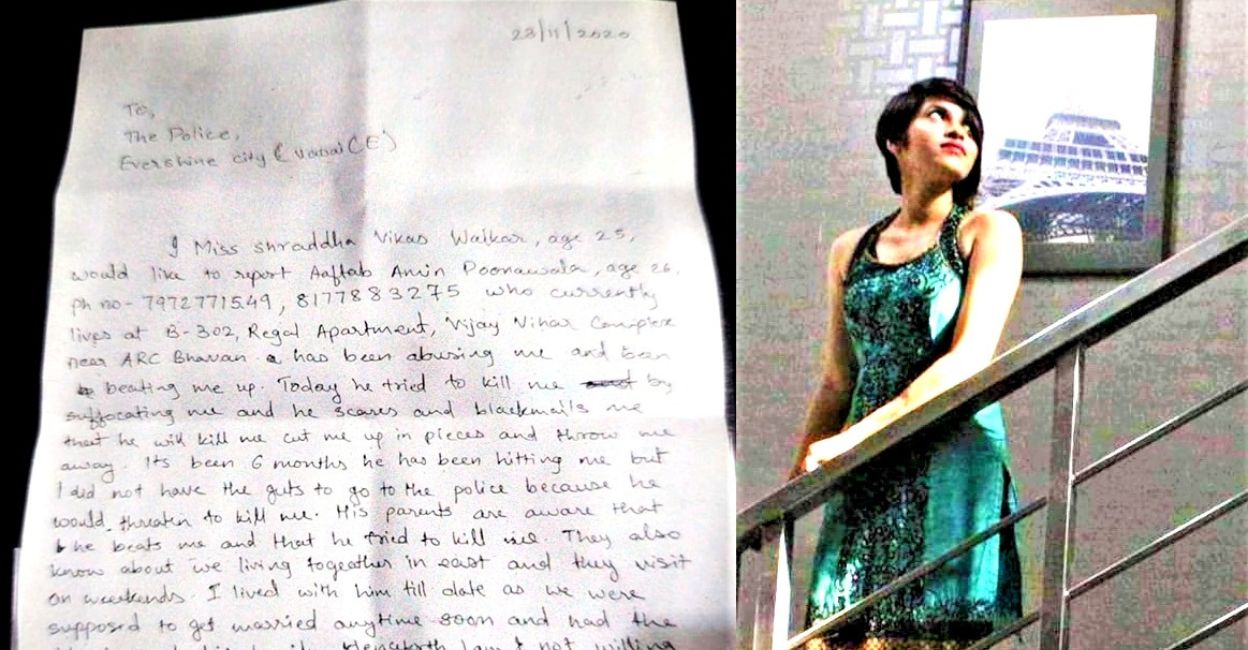 23/11/2020
To,
The Police,
Evershine city (Vasai (E)
I Miss Shraddha Vikas Walkar, age 25,
would like to report Aaftab Amin Poonawala, age 26,
ph no- 7972771549, 8177883275 who currently
lives at B-302, Regal Apartment, Vijay Vihar Complex
near ARC Bhavan has been abusing me and been
beating me up. Today he tried to kill me by
suffocating me and he scares and blackmails me
that he will kill me cut me up in pieces and throw me
away. Its been 6 months he has been hitting me but
I did not have the guts to go to the police because he
would threaten to kill me. His parents are aware that
he beats me and that he tried to kill me. They also
know about we living togeather in east and they visit
on weekends. I lived with him till date as we were
supposed to get married anytime soon and had the
Henceforth I am not willing